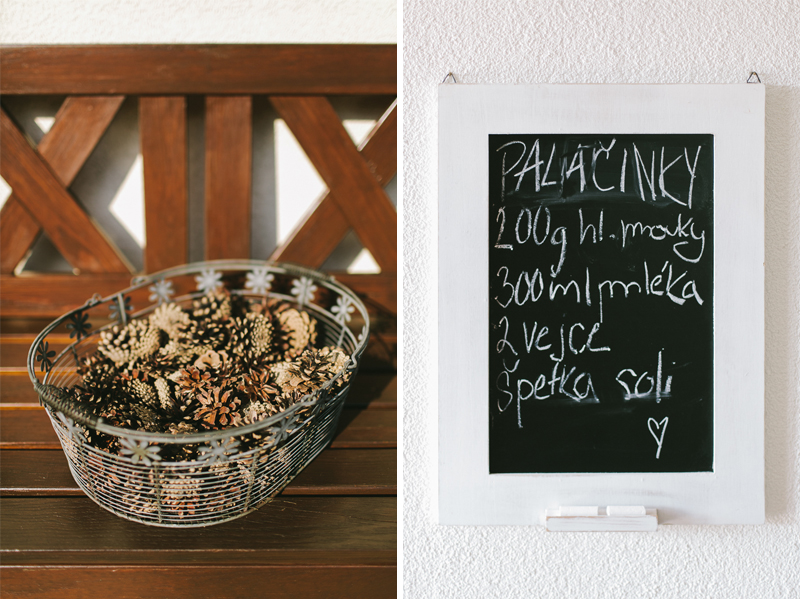 PALAČINKY
200g hl. mouky
300ml mléka
2 vejce
špetka soli